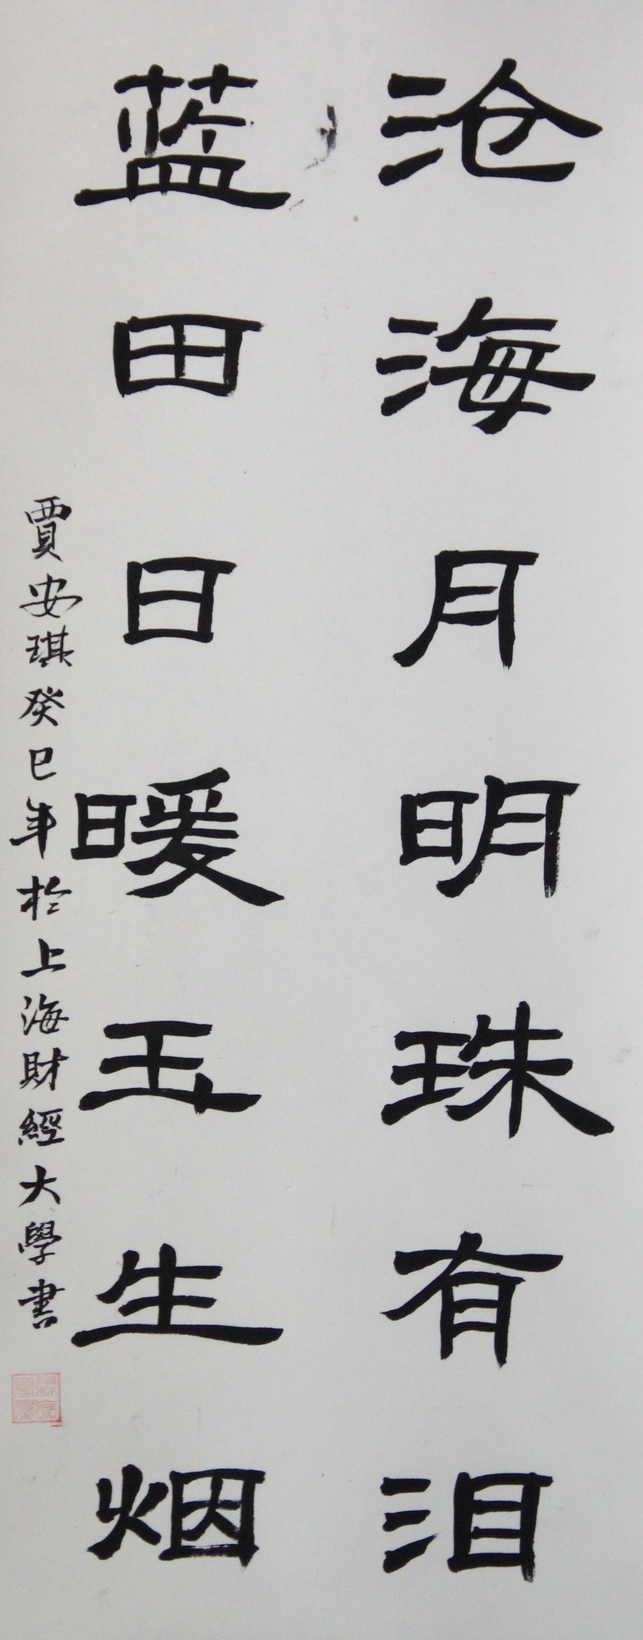 沧海月明珠有泪
蓝田日暖玉生烟
賈安琪癸巳年於上海財經大學書